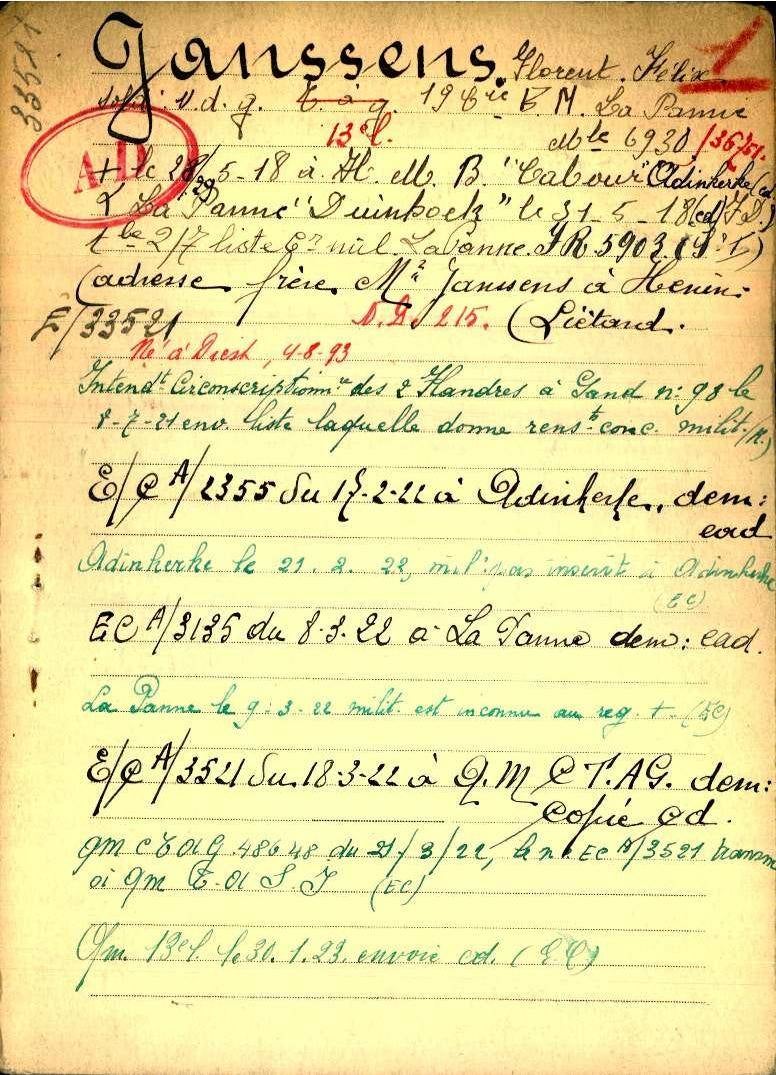 33521
Janssens. Florent. Félix
1
sold: v. d. g. T. a. g. 19 Cie T. M. La Panne
13e l. Mle 6930 /36/51.
A.D
+ le 28/5-18 à H. M. B. "Cabour" Adinkerke (cd
(29)
La Panne "Duinhoek" le 31-5-18 (cd) F.D.)
tbe 217 liste Cre mil. La Panne. JR 5903
(adresse frère Mr Janssens à Henin:
E/33521 N.D. 215. (Liétard.
Né à Diest, 4-8-93
Intendt Circonscriptionre des 2 Flandres à Gand n: 98 le
8-7-21 env. liste laquelle donne renst conc. milit.
E/C A/2355 du 17-2-22 à Adinkerke, dem:
cad
Adinkerke le 21. 2. 22, mil: pas inscrit à Adinkerke
(EC)
EC A/3135 du 8-3-22 à La Panne dem: cad.
La Panne le 9-3-22 milit. est inconnu au reg. + (EC)
E/C A/3521 du 18-3-22 à Q.M C T.AG. dem:
Copie cd.
qm c T a G 48648 du 21/3/22, EC A/3521 transm
à qm T. a S. J (EC)
Qm. 13e l. le 30.1.23. envoie cd. (EC)